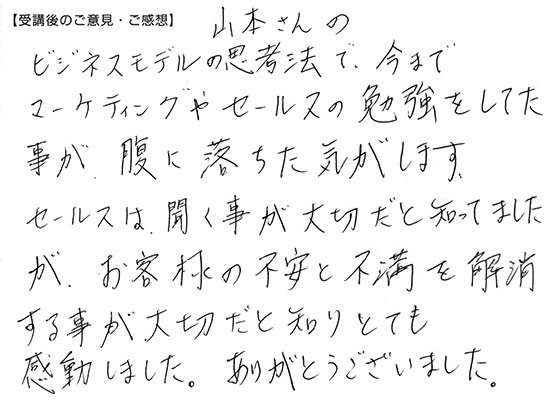 【受講後のご意見・ご感想】 山本さんの
ビジネスモデルの思考法で、今まで
マーケティングやセールスの勉強をしてた
事が、腹に落ちた気がします。
セールスは、聞く事が大切だと知ってました
が、お客様の不安と不満を解消
する事が大切だと知りとても
感動しました。ありがとうございました。